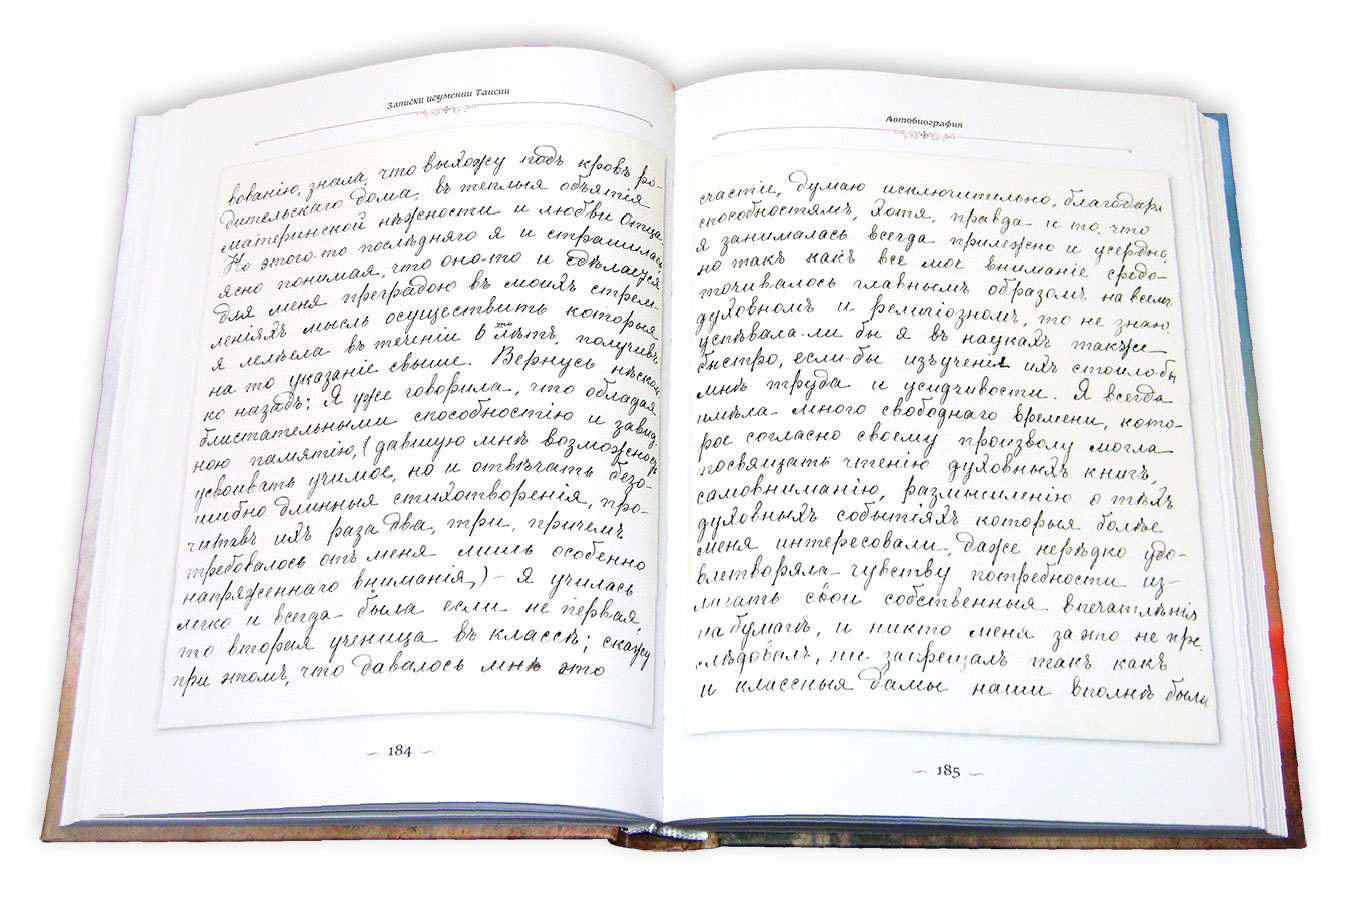 Записки игумении Таисии
вованію, знала, что выхожу подъ кровъ ро-
дительскаго дома, въ теплыя объятія
материнской нѣжности и любви отца.
Но этого-то послѣдняго я и страшилась,
ясно понимая, что оно-то и сдѣлается
для меня преградою въ моихъ стрем-
леніяхъ мысль осуществить которыя
я лелѣяла въ теченіи 6ти лѣтъ, получивъ
на то указаніе свыше. Вернусь нѣсколь
ко назадъ: Я уже говорила, что обладая
блистательными способностію и завид-
ною памятію, (давшую мнѣ возможность
усвоивать учимое, но и отвѣчать безо-
шибно длинныя стихотворенія, про-
читавъ ихъ раза два, три, причемъ
требовалось отъ меня лишь особенно
напряженнаго вниманія,) – я училась
легко и всегда была если не первая,
то вторая ученица въ классѣ; скажу
при этомъ, что давалось мнѣ это
184
Автобиография
счастіе, думаю исключительно, благодаря
способностямъ, хотя, правда и то, что
я занималась всегда прилежно и усердно,
но такъ какъ все мое вниманіе средо-
точивалось главнымъ образомъ на всемъ
духовномъ и религіозномъ, то не знаю,
успѣвала-ли бы я въ наукахъ также
быстро, если-бы изъученія ихъ стоило-бы
мнѣ труда и усидчивости. Я всегда
имѣла много свободнаго времени, кото-
рое согласно своему произволу могла
посвящать чтенію духовныхъ книгъ,
самовниманію, размышленію о тѣхъ
духовныхъ событіяхъ которыя болѣе
меня интересовали, даже нерѣдко удо-
влетворяла чувству потребности из-
лагать свои собственныя впечатлѣнія
на бумагѣ, и никто меня за это не пре
слѣдовалъ, ни запрещалъ такъ какъ
и классныя дамы наши вполнѣ были
185